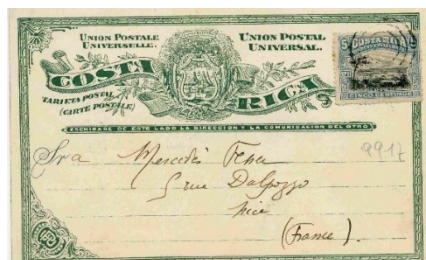 UNION POSTALE
UNIVERSELLE.
UNION POSTAL
UNIVERSAL.
COSTA
RICA
TARJETA POSTAL
(CARTE POSTALE)
COSTA RICA
CINCO CENTIMOS
ESCRIBASE DE ESTE LADO LA DIRECCION Y LA COMUNICACION DEL OTRO
Sra Mercedes
5 rue Dalpozzo
Nice
(France)
9917